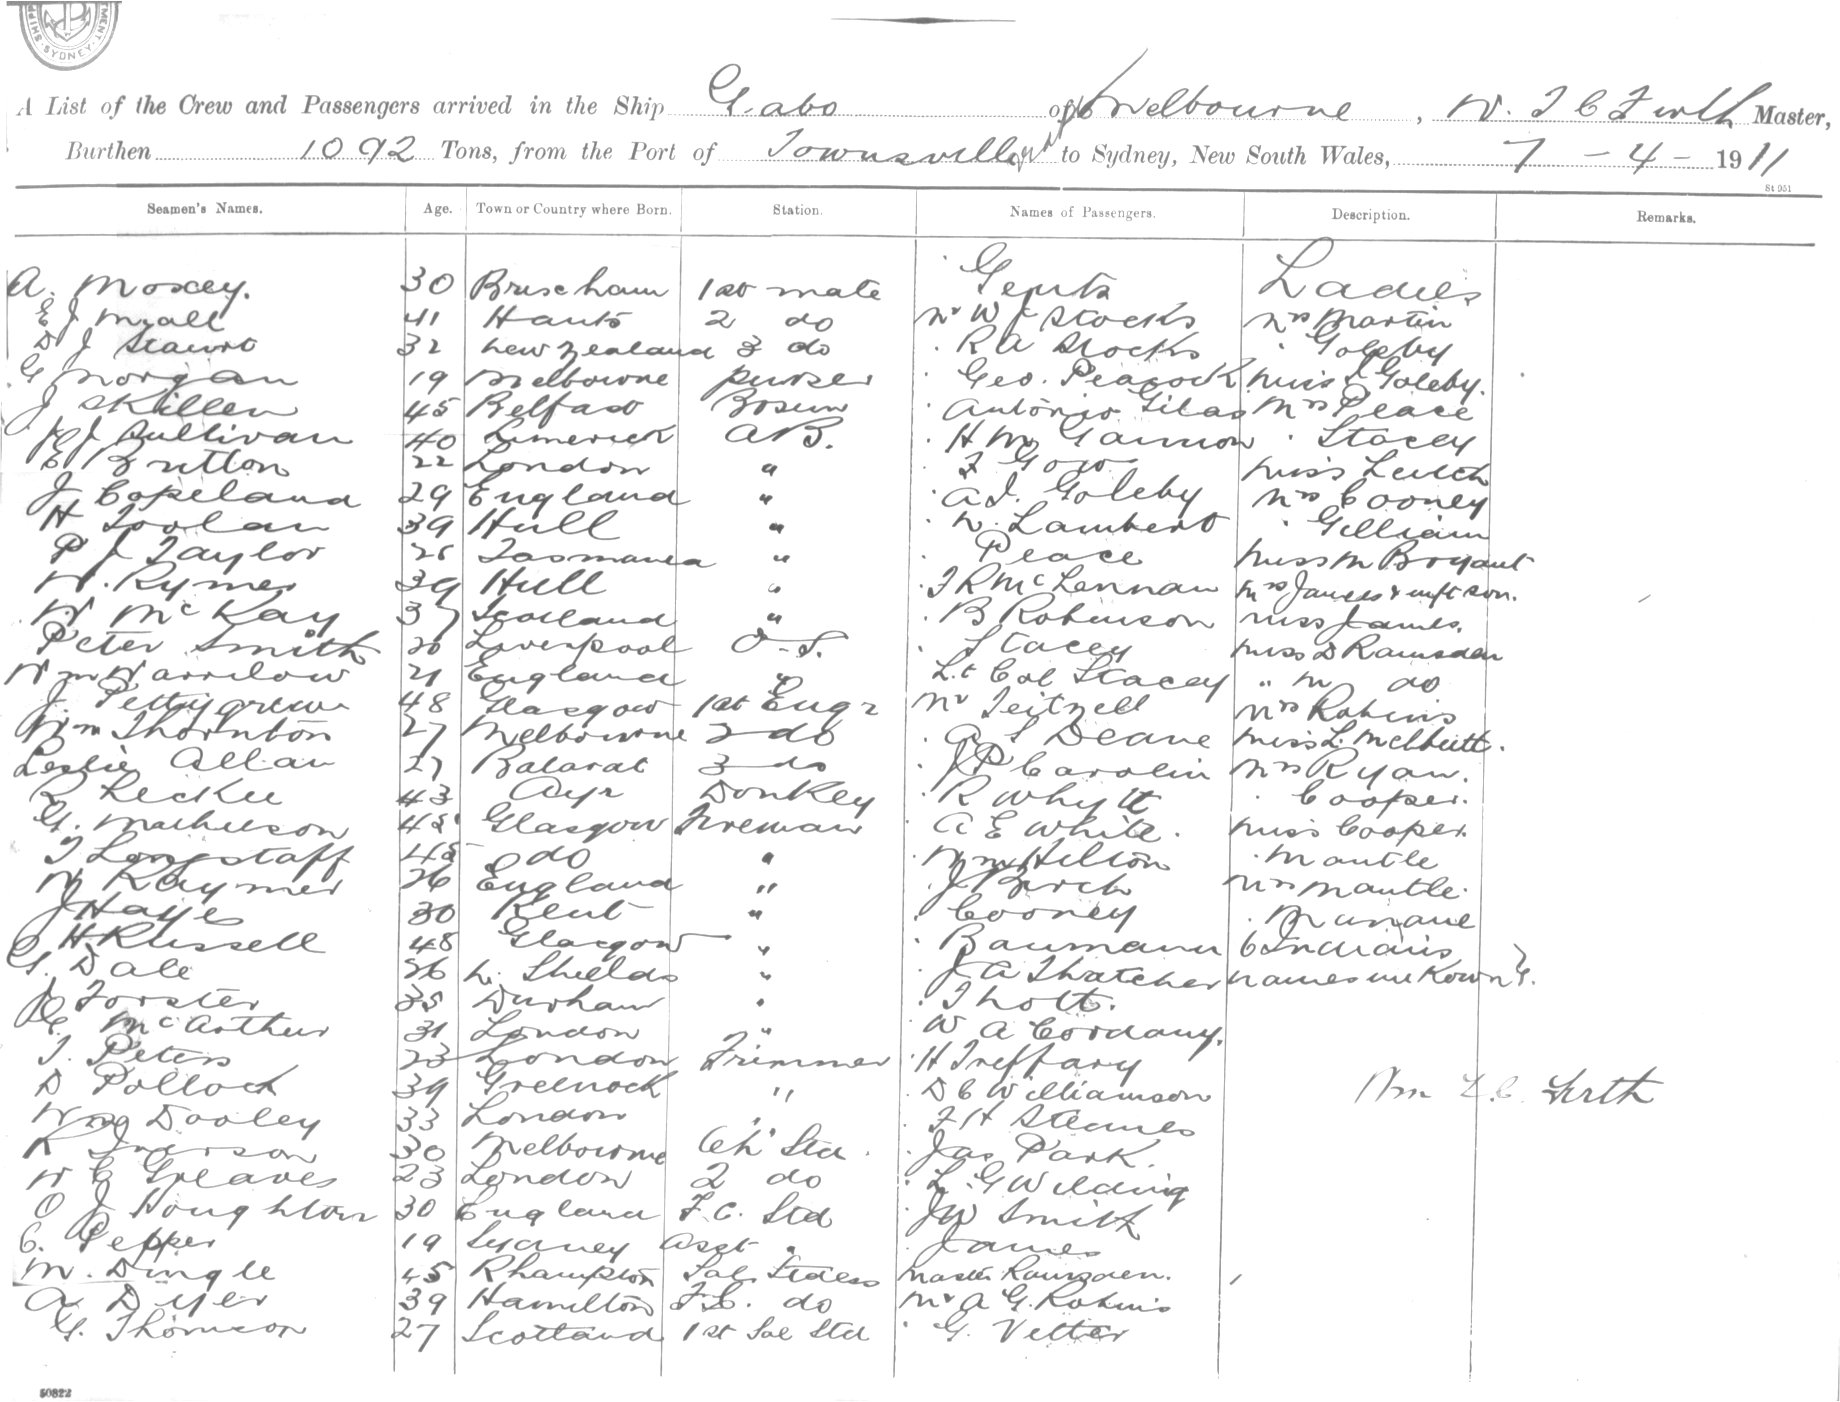 SHIPP MENT. SYDNEY
A List of the Crew and Passengers arrived in the Ship Gabo of Melbourne, W. T C Firth Master,
Burthen 1092 Tons, from the Port of Townsville to Sydney, New South Wales, 7 - 4 - 1911
St 951
Seamen's Names. Age. Town or Country where Born. Station. Names of Passengers. Description. Remarks.
Gents Ladies
A. Moxey. 30 Brixham 1st mate
E J Myall 41 Hants 2 do Mr W J Stocks Mrs Martin
D J 32 New Zealand 3 do R A Stocks " Goleby
G Morgan 19 Melbourne purser Geo. Peacock Miss L Goleby.
J Skillen 45 Belfast Bosun Antonio Gilas Mrs Peace
J Sullivan 40 Limerick A.B. H M Gannon " Stacey
E Britton 22 London " F Gow Miss Leitch
J Copeland 29 England " A J. Goleby Mrs Cooney
H Toolan 39 Hull " W. Lambert " Gilliam
P J Taylor 26 Tasmania " Peace Miss M Bryant
W. Rymer 39 Hull " F R McLennan Mrs James & inft son.
W McKay 37 Scotland " B Robinson Miss James.
Peter Smith 20 Liverpool O.S. Stacey Miss D Ramsden
Wm Warrilow 21 England " Lt Col Stacey " M do
J. Pettygrew 48 Glasgow 1st Engr Mr Teitzell Mrs Robins
Wm Thornton 27 Melbourne 2 do A S Deane Miss L.
Leslie Allan 27 Balarat 3 do J P Carolin Mrs Ryan.
R Leckie 43 Ayr Donkey R Whytt " Cooper.
G. Mathieson 45 Glasgow Fireman A E White. Miss Cooper.
T Longstaff 45 do " Wm Hilton " Mantle
W Raymer 26 England " J Birch Mrs Mantle
J Hayes 30 Kent " Cooney
H Russell 48 Glasgow " Baumann 6 Indians
G. Dale 26 N. Shields " J A Thatcher names unknown
J Forster 35 Durham " T Holt.
C. McArthur 31 London " W A Cordany.
T. Peters 23 London Trimmer H Treffary
D Pollock 39 Greenock " D C Williamson Wm T. C. Firth
Wm Dooley 33 London " F H
R 30 Melbourne Ch Std. Jas Park.
W C Greaves 23 London 2 do L. G Wilding
O J Houghton 30 England F.C. Std J W Smith
C. Pepper 19 Sydney Asst " James
M. Dingle 45 Rhampton Sal Stdess Master Ramsden.
A Dyer 39 Hamilton F.C. do Mr A G. Robins
G. Thomson 27 Scotland 1st Sal Std G. Vetter
50822